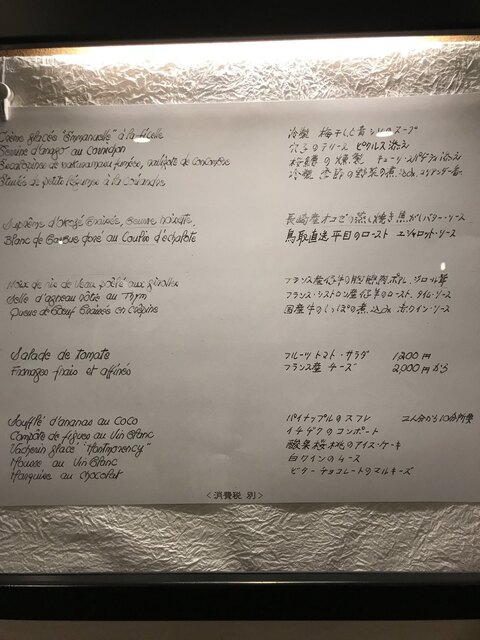 Crème glacée "Emmanuelle" à la ficelle
冷製 梅干しと青じそのスープ
Terrine d'anago au Cornichon
穴子のテリーヌ ピクルス添え
桜鱒の燻製 キューリ・スパゲティ添え
Étuvée de petits légumes à la Coriandre
冷製 季節の野菜の煮込み、コリアンダー風
Suprême d'Okozé Braisée, Beurre noisette
長崎産オコゼの蒸し焼き 焦がしバター・ソース
Blanc de Barbue doré au Coulis d'échalote
鳥取直送 平目のロースト エシャロット・ソース
Noix de ris de Veau poêlé aux girolles
フランス産仔牛の胸腺肉ポワレ、ジロール茸
Selle d'agneau rôtie au Thym
フランス・シストロン産仔羊のロースト、タイム・ソース
Queue de Bœuf Braisée en Crépine
国産牛のしっぽの煮込み 赤ワイン・ソース
Salade de tomate
フルーツトマト・サラダ 1200円
Fromages frais et affinés
フランス産 チーズ 2,000円から
Soufflé d'ananas au Coco
パイナップルのスフレ 2人分から 20分所要
Compote de figues au Vin Blanc
イチヂクのコンポート
Vacherin glacé "Montmorency"
酸果桜桃のアイス・ケーキ
Mousse au Vin Blanc
白ワインのムース
Marquise au Chocolat
ビターチョコレートのマルキーズ
<消費税 別>